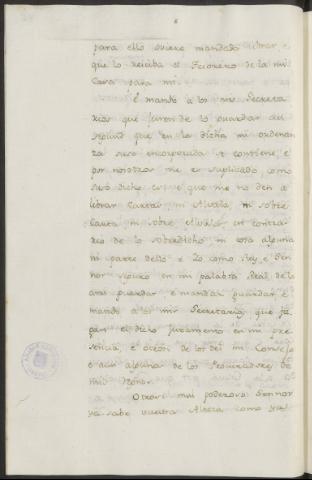 para ello oviere mandado librar e
que lo reciba el Tesorero de la mi
Casa para mi.
E mando a los mis Secreta
rios que juren de lo guardar asi
segund que en la dicha mi ordenan
za suso encorporada se contiene e
por vosotros me es suplicado como
suso dicho es, e que me no den a
librar Cartas ni Alvala, ni sobre
Carta ni sobre Alvala en contra
rio de lo sobredicho ni cosa alguna
ni parte dello e Yo como Rey, e Sen
nor seguro en mi palabra Real de lo
ansi guardar e mandar guardar e
mando a los mis Secretarios que fa
gan el dicho juramento en mi pre
sencia, e ante los del mi Consejo
e aun algunos de los Procuradores de
mis Regnos.
Otrosi mui poderoso Sennor
ya sabe vuestra Alteza como